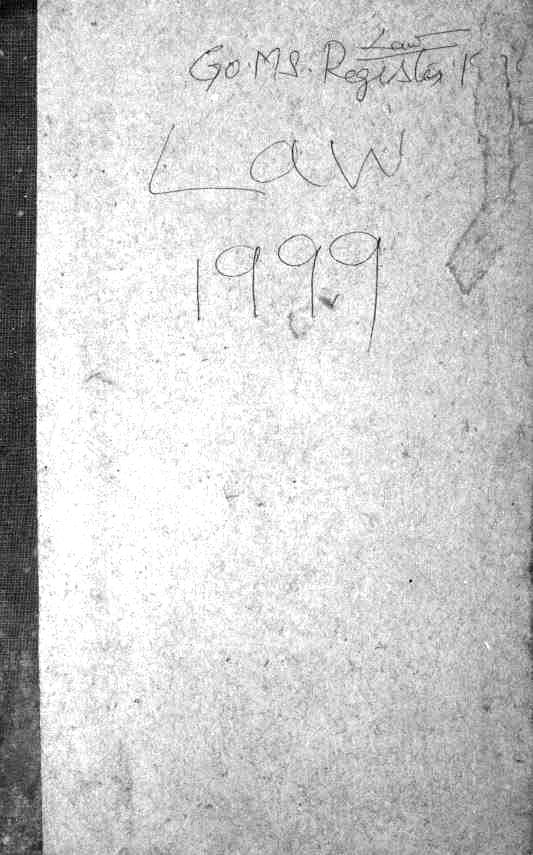 Law
Go.MS. Register
Law
1999